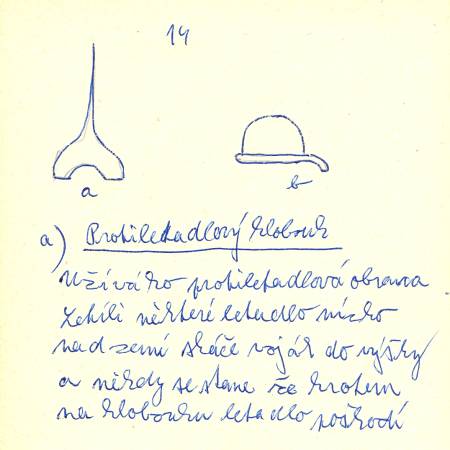 14
a
b
a) Protiletadlový klobouk
Užívá ho protiletadlová obrana
Letíli některé letadlo nízko
nad zemí skáče voják do výšky
a někdy se stane že hrotem
na klobouku letadlo poškodí